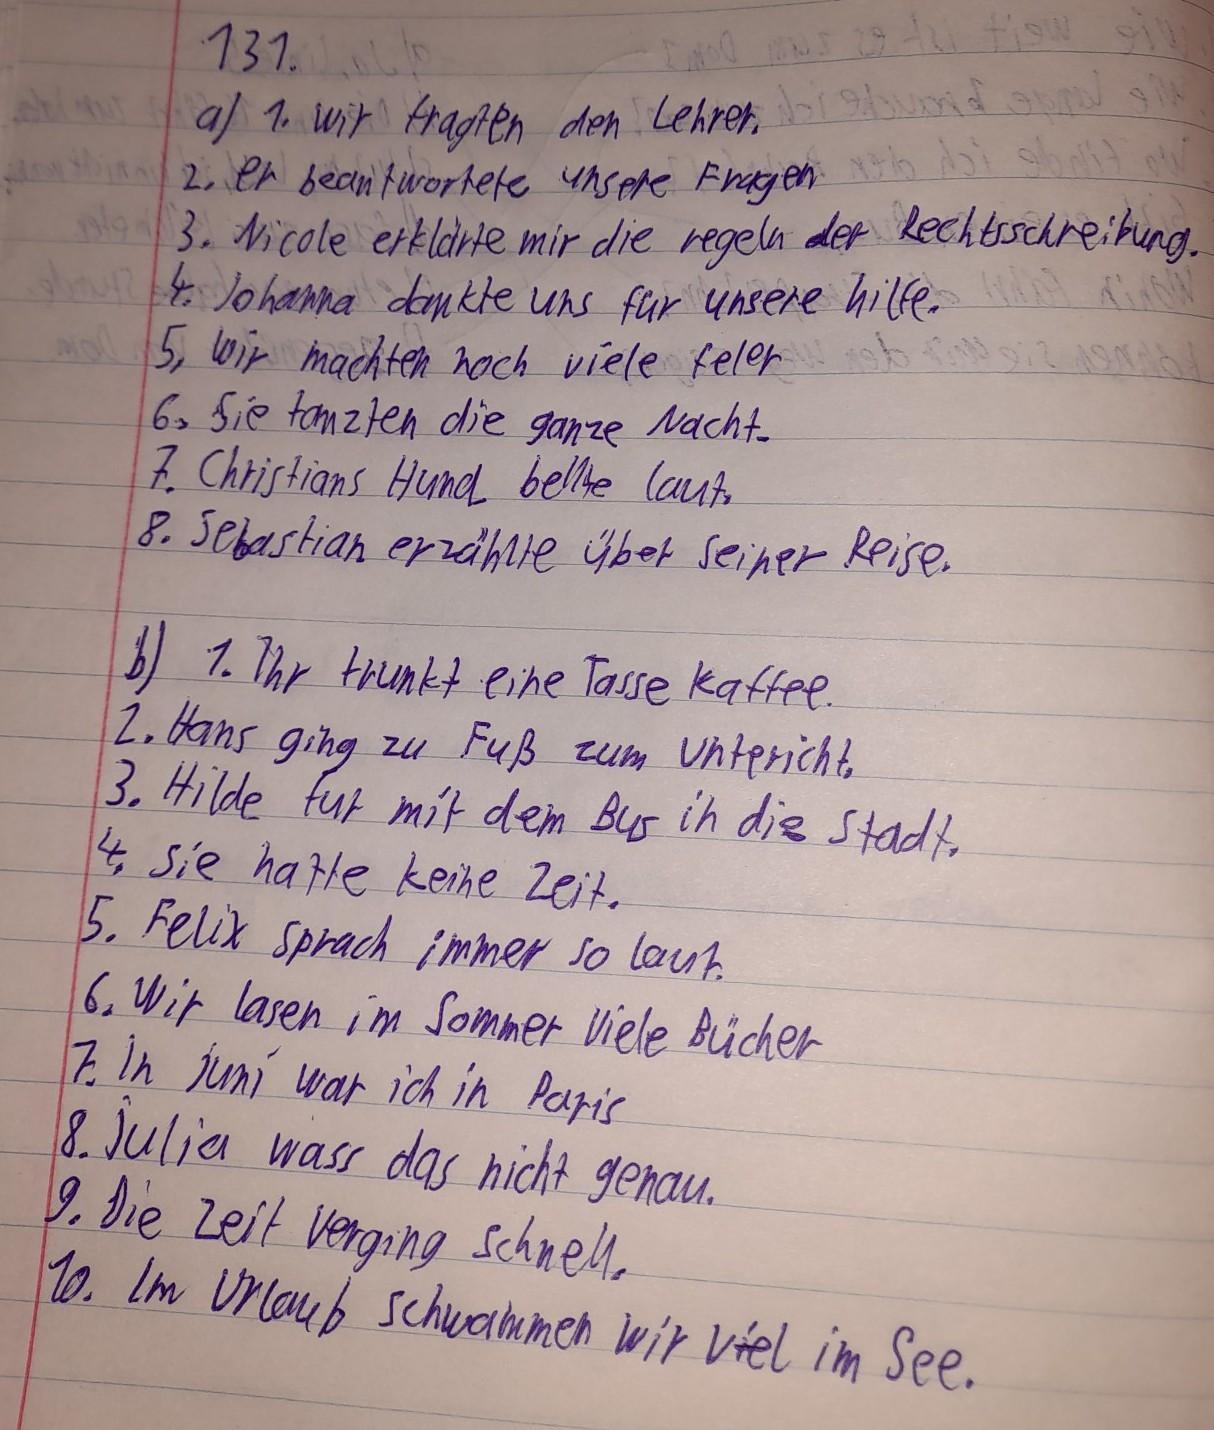 131.
a) 1. Wir fragten den Lehrer.
2. er beantwortete unsere Fragen
3. Nicole erklärte mir die regeln der Rechtsschreibung.
4. Johanna dankte uns für unsere hilfe.
5, Wir machten noch viele feler
6. Sie tanzten die ganze Nacht.
7. Christians Hund bellte laut.
8. Sebastian erzählte über seiner Reise.
b) 1. Ihr trunkt eine Tasse Kaffee.
2. Hans ging zu Fuß zum Untericht.
3. Hilde fur mit dem Bus in die Stadt.
4. Sie hatte keine Zeit.
5. Felix sprach immer so laut.
6. Wir lasen im Sommer viele Bücher
7. in juni war ich in Paris
8. Julia wass das nicht genau.
9. Die Zeit verging schnell.
10. Im Urlaub schwammen wir viel im See.